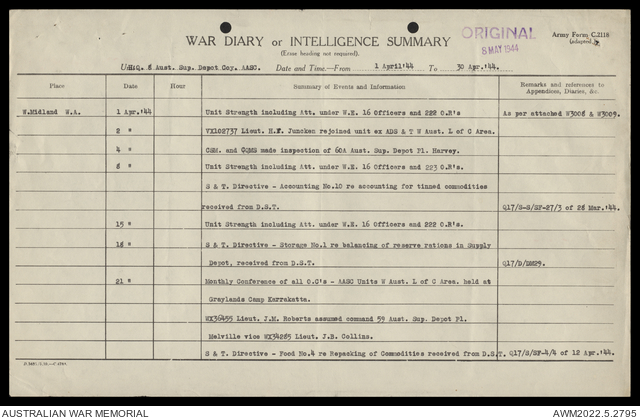 ORIGINAL
8 MAY 1944
Army Form C.2118
(adapted).
WAR DIARY or INTELLIGENCE SUMMARY
(Erase heading not required).
H.Q. 8 Aust. Sup. Depot Coy. AASC. Date and Time.—From 1 April'44 To 30 Apr.'44.
Place Date Hour Summary of Events and Information Remarks and references to
Appendices, Diaries, &c.
W.Midland W.A. 1 Apr.'44 Unit Strength including Att. under W.E. 16 Officers and 222 O.R's As per attached W3008 & W3009.
2 " VX102737 Lieut. H.F. Juncken rejoined unit ex ADS & T W Aust. L of C Area.
4 " CSM. and CQMS made inspection of 60A Aust. Sup. Depot Pl. Harvey.
8 " Unit Strength including Att. under W.E. 16 Officers and 223 O.R's.
S & T. Directive - Accounting No.10 re accounting for tinned commodities
received from D.S.T. Q17/S-S/SF-27/3 of 28 Mar.'44.
15 " Unit Strength including Att. under W.E. 16 Officers and 222 O.R's.
18 " S & T. Directive - Storage No.1 re balancing of reserve rations in Supply
Depot, received from D.S.T. Q17/D/DM29.
21 " Monthly Conference of all O.C's - AASC Units W Aust. L of C Area. held at
Graylands Camp Karrakatta.
WX36455 Lieut. J.M. Roberts assumed command 59 Aust. Sup. Depot Pl.
Melville vice WX34285 Lieut. J.B. Collins.
S & T. Directive - Food No.4 re Repacking of Commodities received from D.S.T. Q17/S/SF-4/4 of 12 Apr.'44.
AUSTRALIAN WAR MEMORIAL AWM2022.5.2795